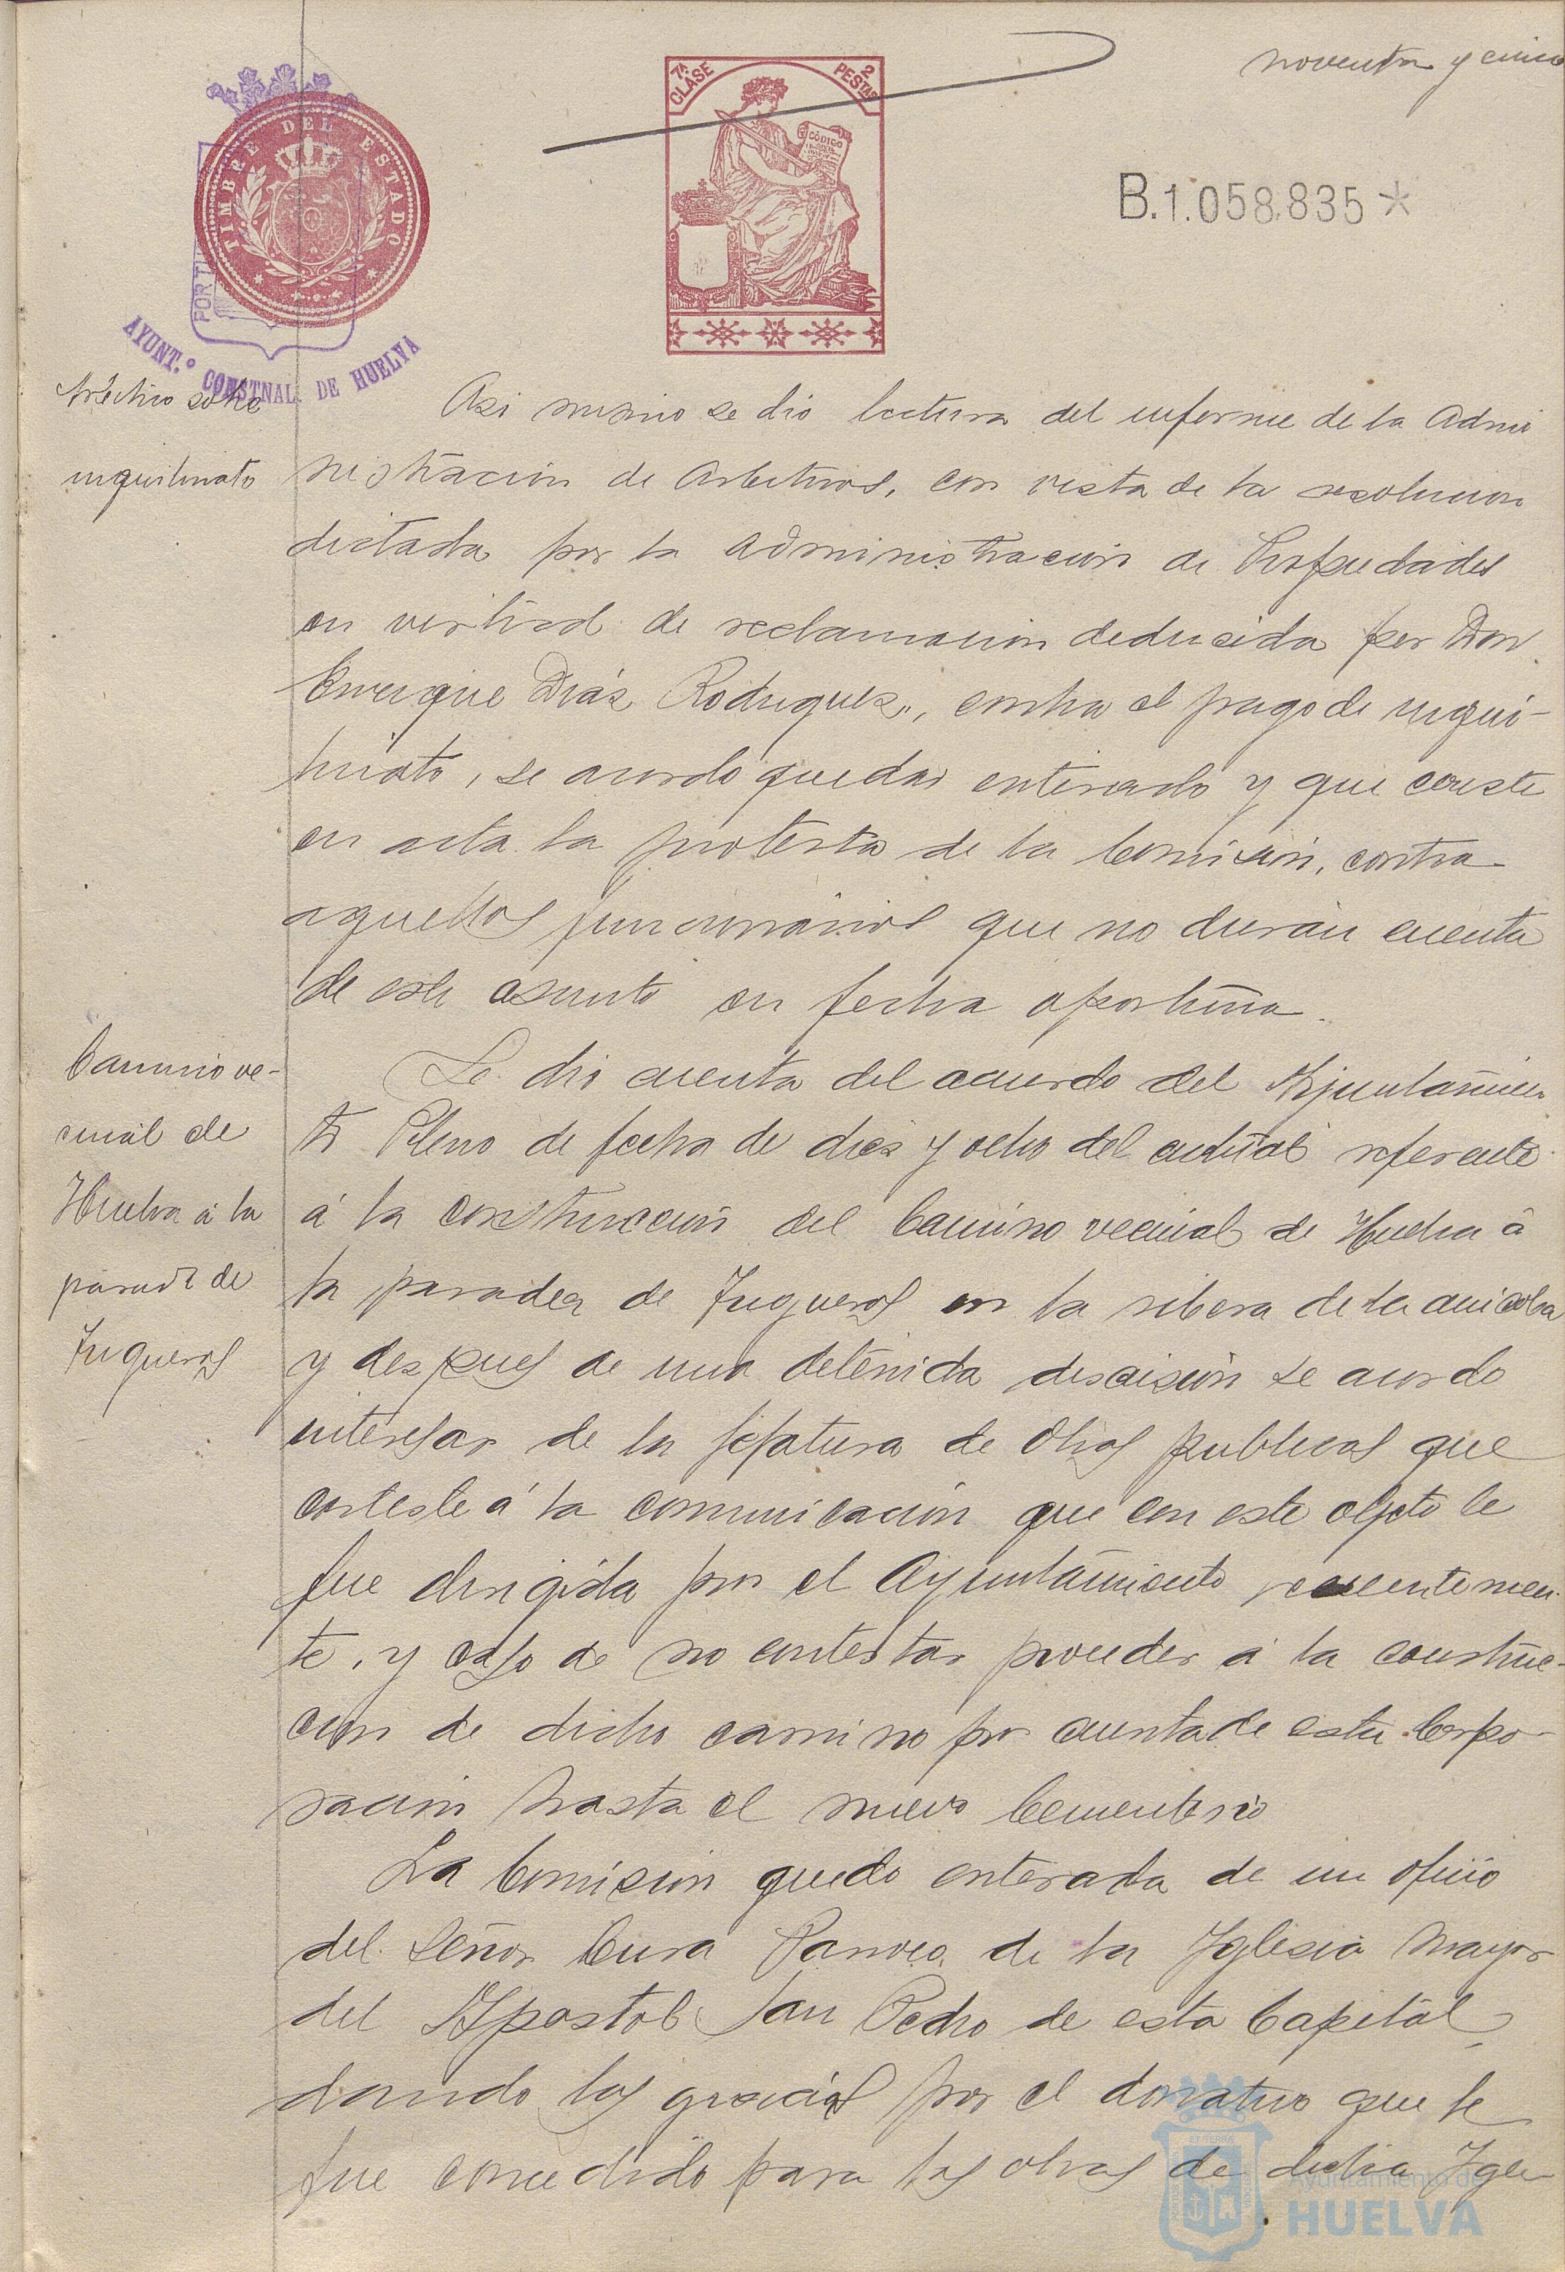 noventa y cinco
TIMBRE DEL ESTADO
7ª CLASE
2 PESTAS
CÓDIGO
B.1.058.835*
AYUNT.º CONSTNAL. DE HUELVA
Arbitrio sobre
inquilinato
Asi mismo se dio lectura del informe de la Admi
nistración de Arbitrios, con vista de la resolucion
dictada por la Administración de Propiedades
en virtud de reclamacion deducida por Don
Enrique Diás Rodriguez, contra el pago de inqui-
linato, se acordo quedar enterado y que conste
en acta la protesta de la Comisión, contra
aquellos funcionarios que no dieran cuenta
de este asunto en fecha oportuna.
Camino ve-
cinal de
Huelva á la
parada de
Jugueros
Se dio cuenta del acuerdo del Ayuntamien
to Pleno de fecha de dies y ocho del actual referente
á la construcción del Camino vecinal de Huelva á
la parada de Jugueros en la ribera de la anicoba
y despues de una detenida discisión se acordo
interesar de la Jefatura de Obras publicas que
conteste á la comunicación que con este objeto le
fue dirigida por el Ayuntamiento recientemen-
te, y caso de no contestar proceder á la construc-
cion de dicho camino por cuenta de esta Corpo-
racion hasta el nuevo Cementerio
La Comision quedo enterada de un oficio
del Señor Cura Parroco de la Iglesia Mayor
del Apostol San Pedro de esta Capital
dando las gracias por el donativo que le
fue concedido para las obras de dicha Igle
Ayuntamiento de
HUELVA